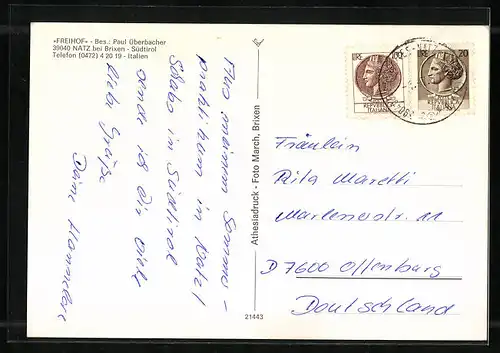 «FREIHOF» - Bes.: Paul Überbacher
39040 NATZ bei Brixen - Südtirol
Telefon (0472) 4 20 19 - Italien
Aus meinem Sommer-
praktikum in Natz/
Schabs in Südtirol
sende ich dir viele
liebe Grüße
Deine Hannelore
Athesiadruck - Foto March, Brixen
21443
LIRE 100
20
Fräulein
Rita Maretti
Marlenerstr. 11
D 7600 Offenburg
Deutschland